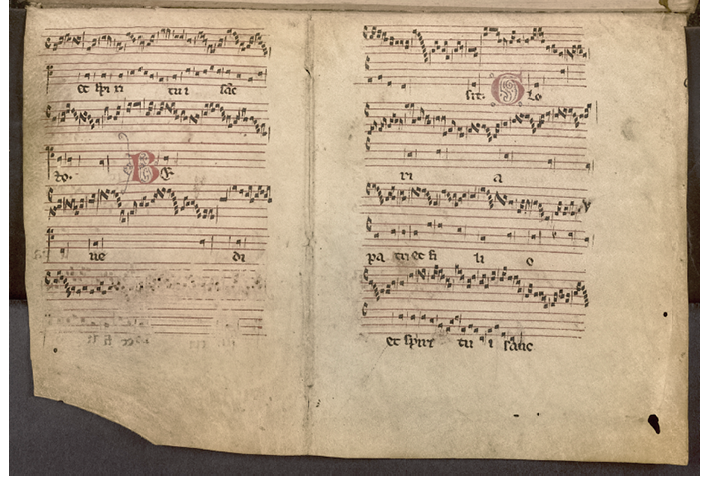 et spiri tui sāc
to. BE
ne di
sit. Glo
ri a
pa tri et fi li o
et spiri tu i sānc